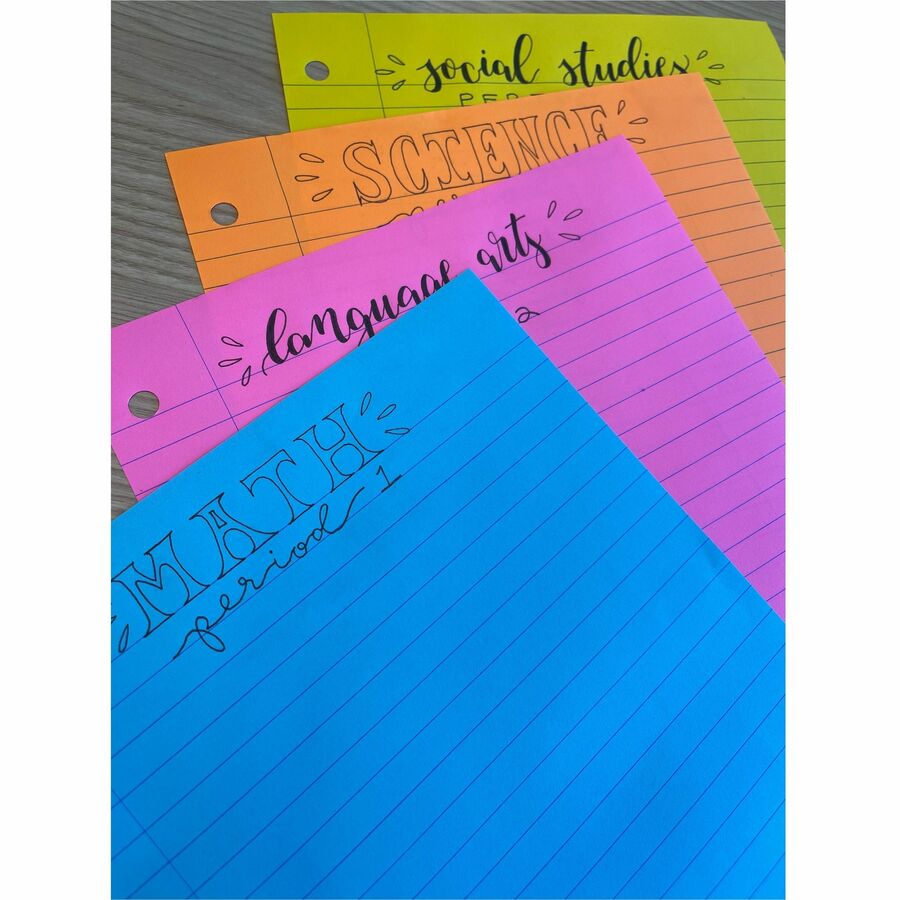 social studies
SCIENCE
language arts
2
MATH
period 1